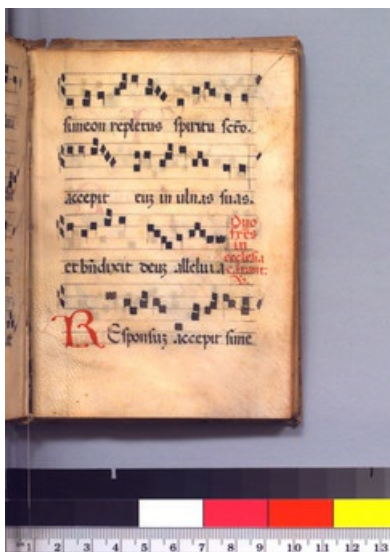 simeon repletus spiritu scto.
accepit euz in ulnas suas.
et bndixit deuz alleluia
Duo
fres
in
ecclesia
cātant:
V.
Responsuz accepit sime
1 2 3 4 5 6 7 8 9 10 11 12 13